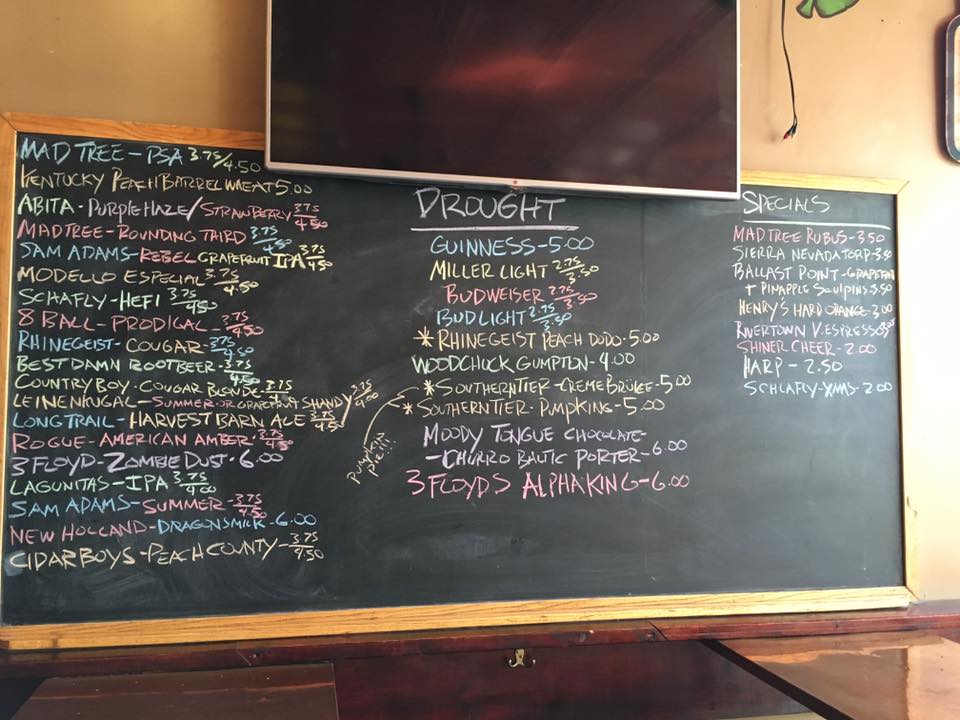 MAD TREE - PSA 3.75/4.50
KENTUCKY PEACH BARREL WHEAT 5.00
ABITA - PURPLE HAZE/STRAWBERRY 3.75/4.50
MADTREE - ROUNDING THIRD 3.75/4.50
SAM ADAMS - REBEL GRAPEFRUIT IPA 3.75/4.50
MODELLO ESPECIAL 3.75/4.50
SCHAFLY - HEFI 3.75/4.50
8 BALL - PRODIGAL - 3.75/4.50
RHINEGEIST - COUGAR - 3.75/4.50
BEST DAMN ROOTBEER - 3.75/4.50
COUNTRY BOY - COUGAR BLONDE - 3.75/4.50
LEINENKUGAL - SUMMER OR GRAPEFRUIT SHANDY 3.75/4.00
LONG TRAIL - HARVEST BARN ALE 3.75/4.50
ROGUE - AMERICAN AMBER - 3.75/4.50
3 FLOYD - ZOMBIE DUST - 6.00
LAGUNITAS - IPA 3.75/4.00
SAM ADAMS - SUMMER - 3.75/4.50
NEW HOLLAND - DRAGONSMILK - 6.00
CIDARBOYS - PEACH COUNTY - 3.75/4.50
DROUGHT
GUINNESS - 5.00
MILLER LIGHT 2.75/3.50
BUDWEISER 2.75/3.50
BUD LIGHT 2.75/3.50
* RHINEGEIST PEACH DODO - 5.00
WOODCHUCK GUMPTION - 4.00
* SOUTHERN TIER - CREME BRULEE - 5.00
* SOUTHERN TIER - PUMPKING - 5.00
PUMPKIN
PIE!!!
MOODY TONGUE CHOCOLATE
- CHURRO BALTIC PORTER - 6.00
3 FLOYDS ALPHA KING - 6.00
SPECIALS
MADTREE RUBUS - 3.50
SIERRA NEVADA TORP - 3.50
BALLAST POINT - GRAPEFRUIT
+ PINAPPLE SCULPINS 3.50
HENRY'S HARD ORANGE - 3.00
RIVERTOWN V. ESPRESS
SHINER CHEER - 2.00
HARP - 2.50
SCHLAFLY - XMAS - 2.00